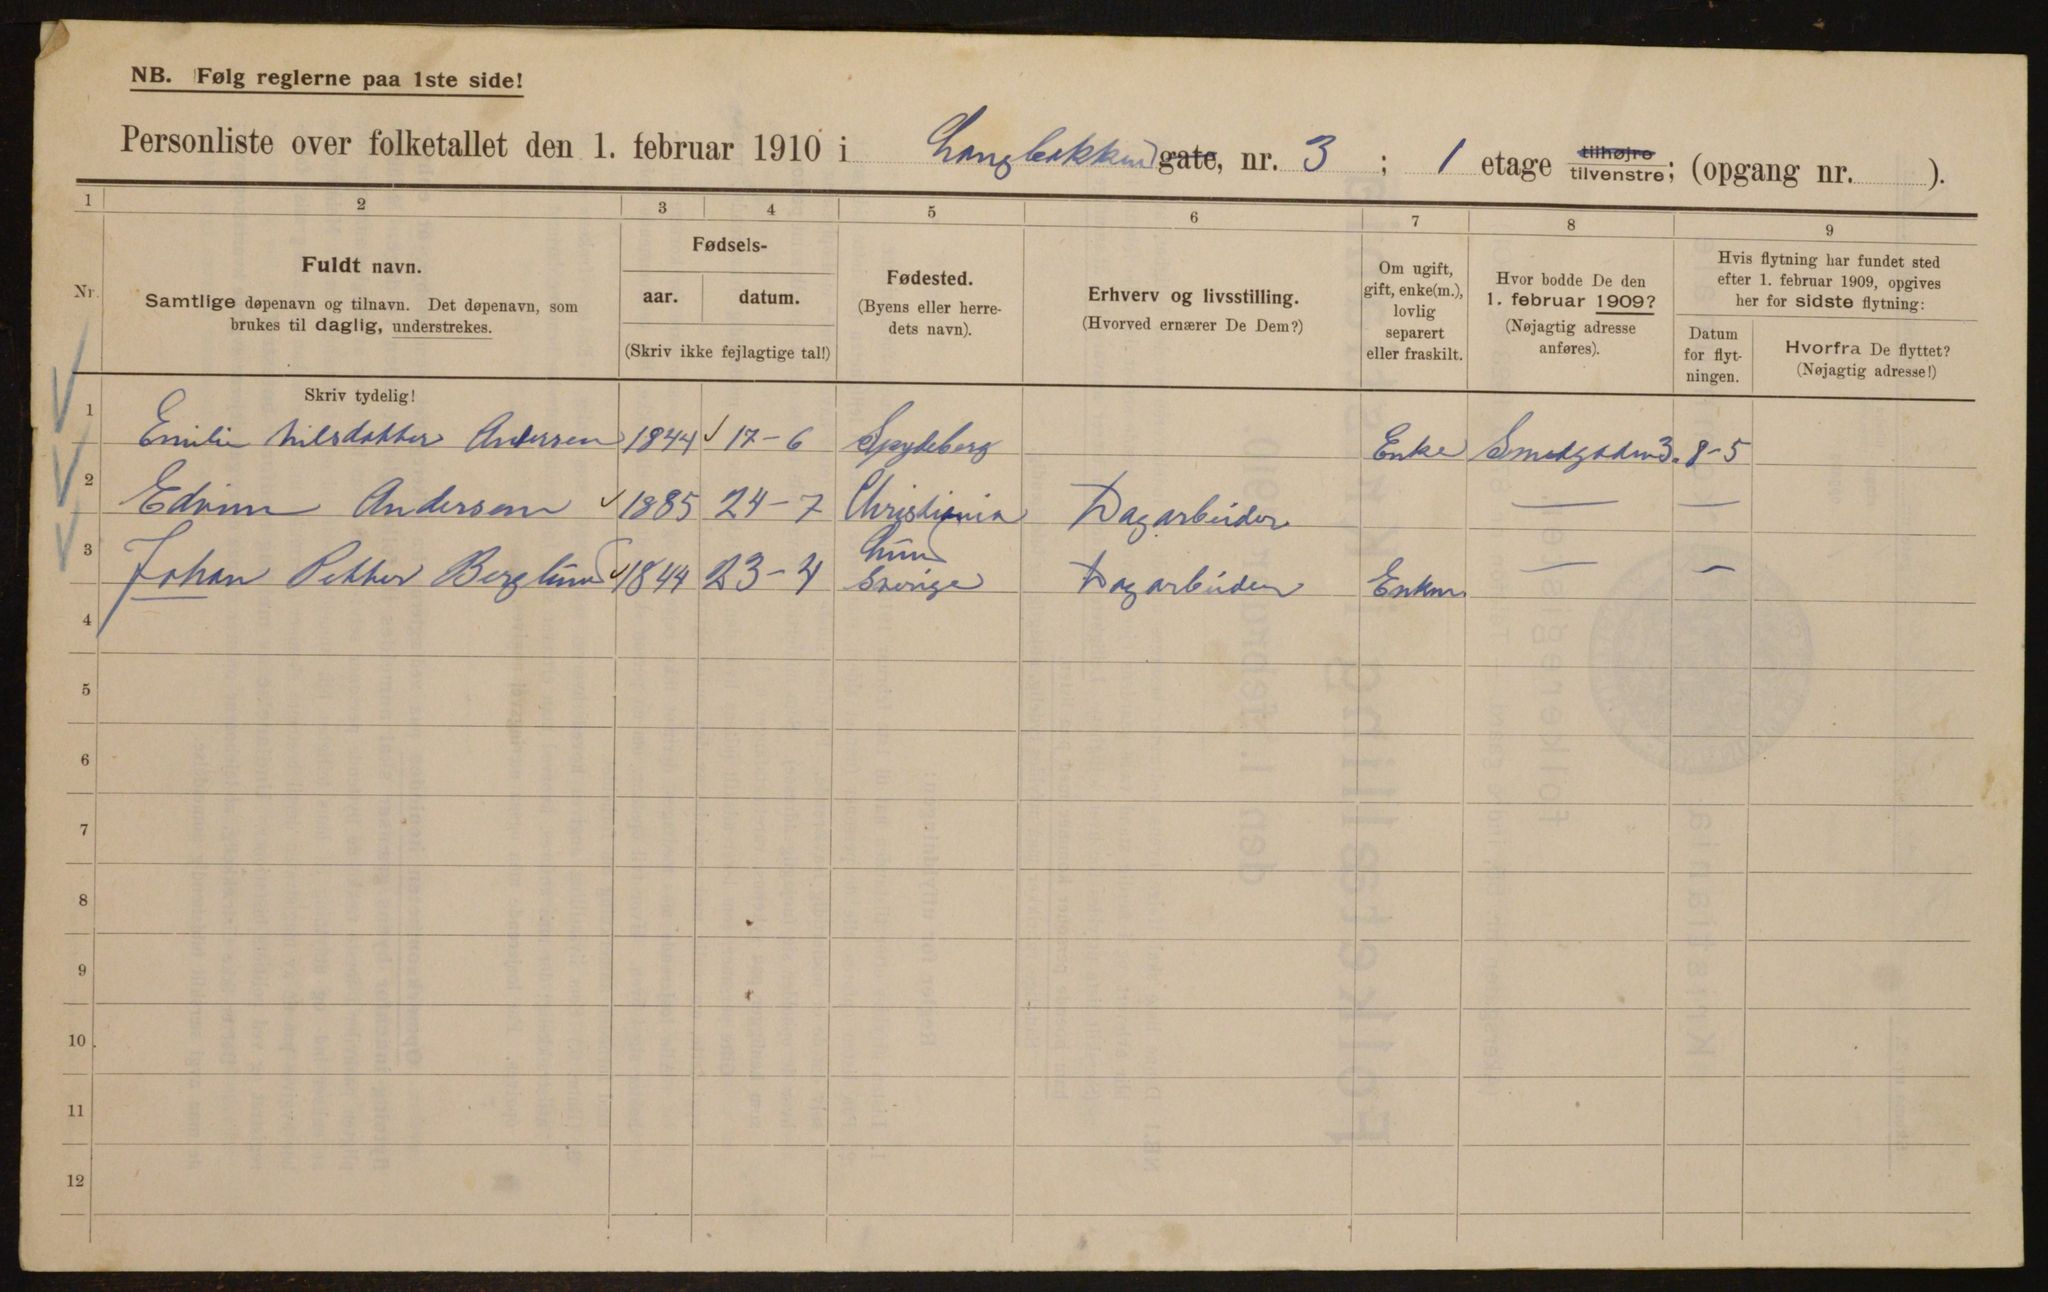 NB. Følg reglerne paa 1ste side!
Personliste over folketallet den 1. februar 1910 i Langbakken gate, nr. 3 ; 1 etage tilhøjre tilvenstre; (opgang nr. ).
1 2 3 4 5 6 7 8 9
Nr.
Fuldt navn.
Samtlige døpenavn og tilnavn. Det døpenavn, som
brukes til daglig, understrekes.
Fødsels-
aar. datum.
(Skriv ikke fejlagtige tal!)
Fødested.
(Byens eller herre-
dets navn).
Erhverv og livsstilling.
(Hvorved ernærer De Dem?)
Om ugift,
gift, enke(m.),
lovlig
separert
eller fraskilt.
Hvor bodde De den
1. februar 1909?
(Nøjagtig adresse
anføres).
Hvis flytning har fundet sted
efter 1. februar 1909, opgives
her for sidste flytning:
Datum
for flyt-
ningen.
Hvorfra De flyttet?
(Nøjagtig adresse!)
Skriv tydelig!
1 Emilie Nilsdatter Andersen 1844 17-6 Spydeberg Enke Smedgaden 3. 8-5
2 Edvinn Andersen 1885 24-7 Christiania Dagarbeider — —
3 Johan Petter Berglund 1844 23-4 Lund Sverige Dagarbeider Enkm — —
4
5
6
7
8
9
10
11
12